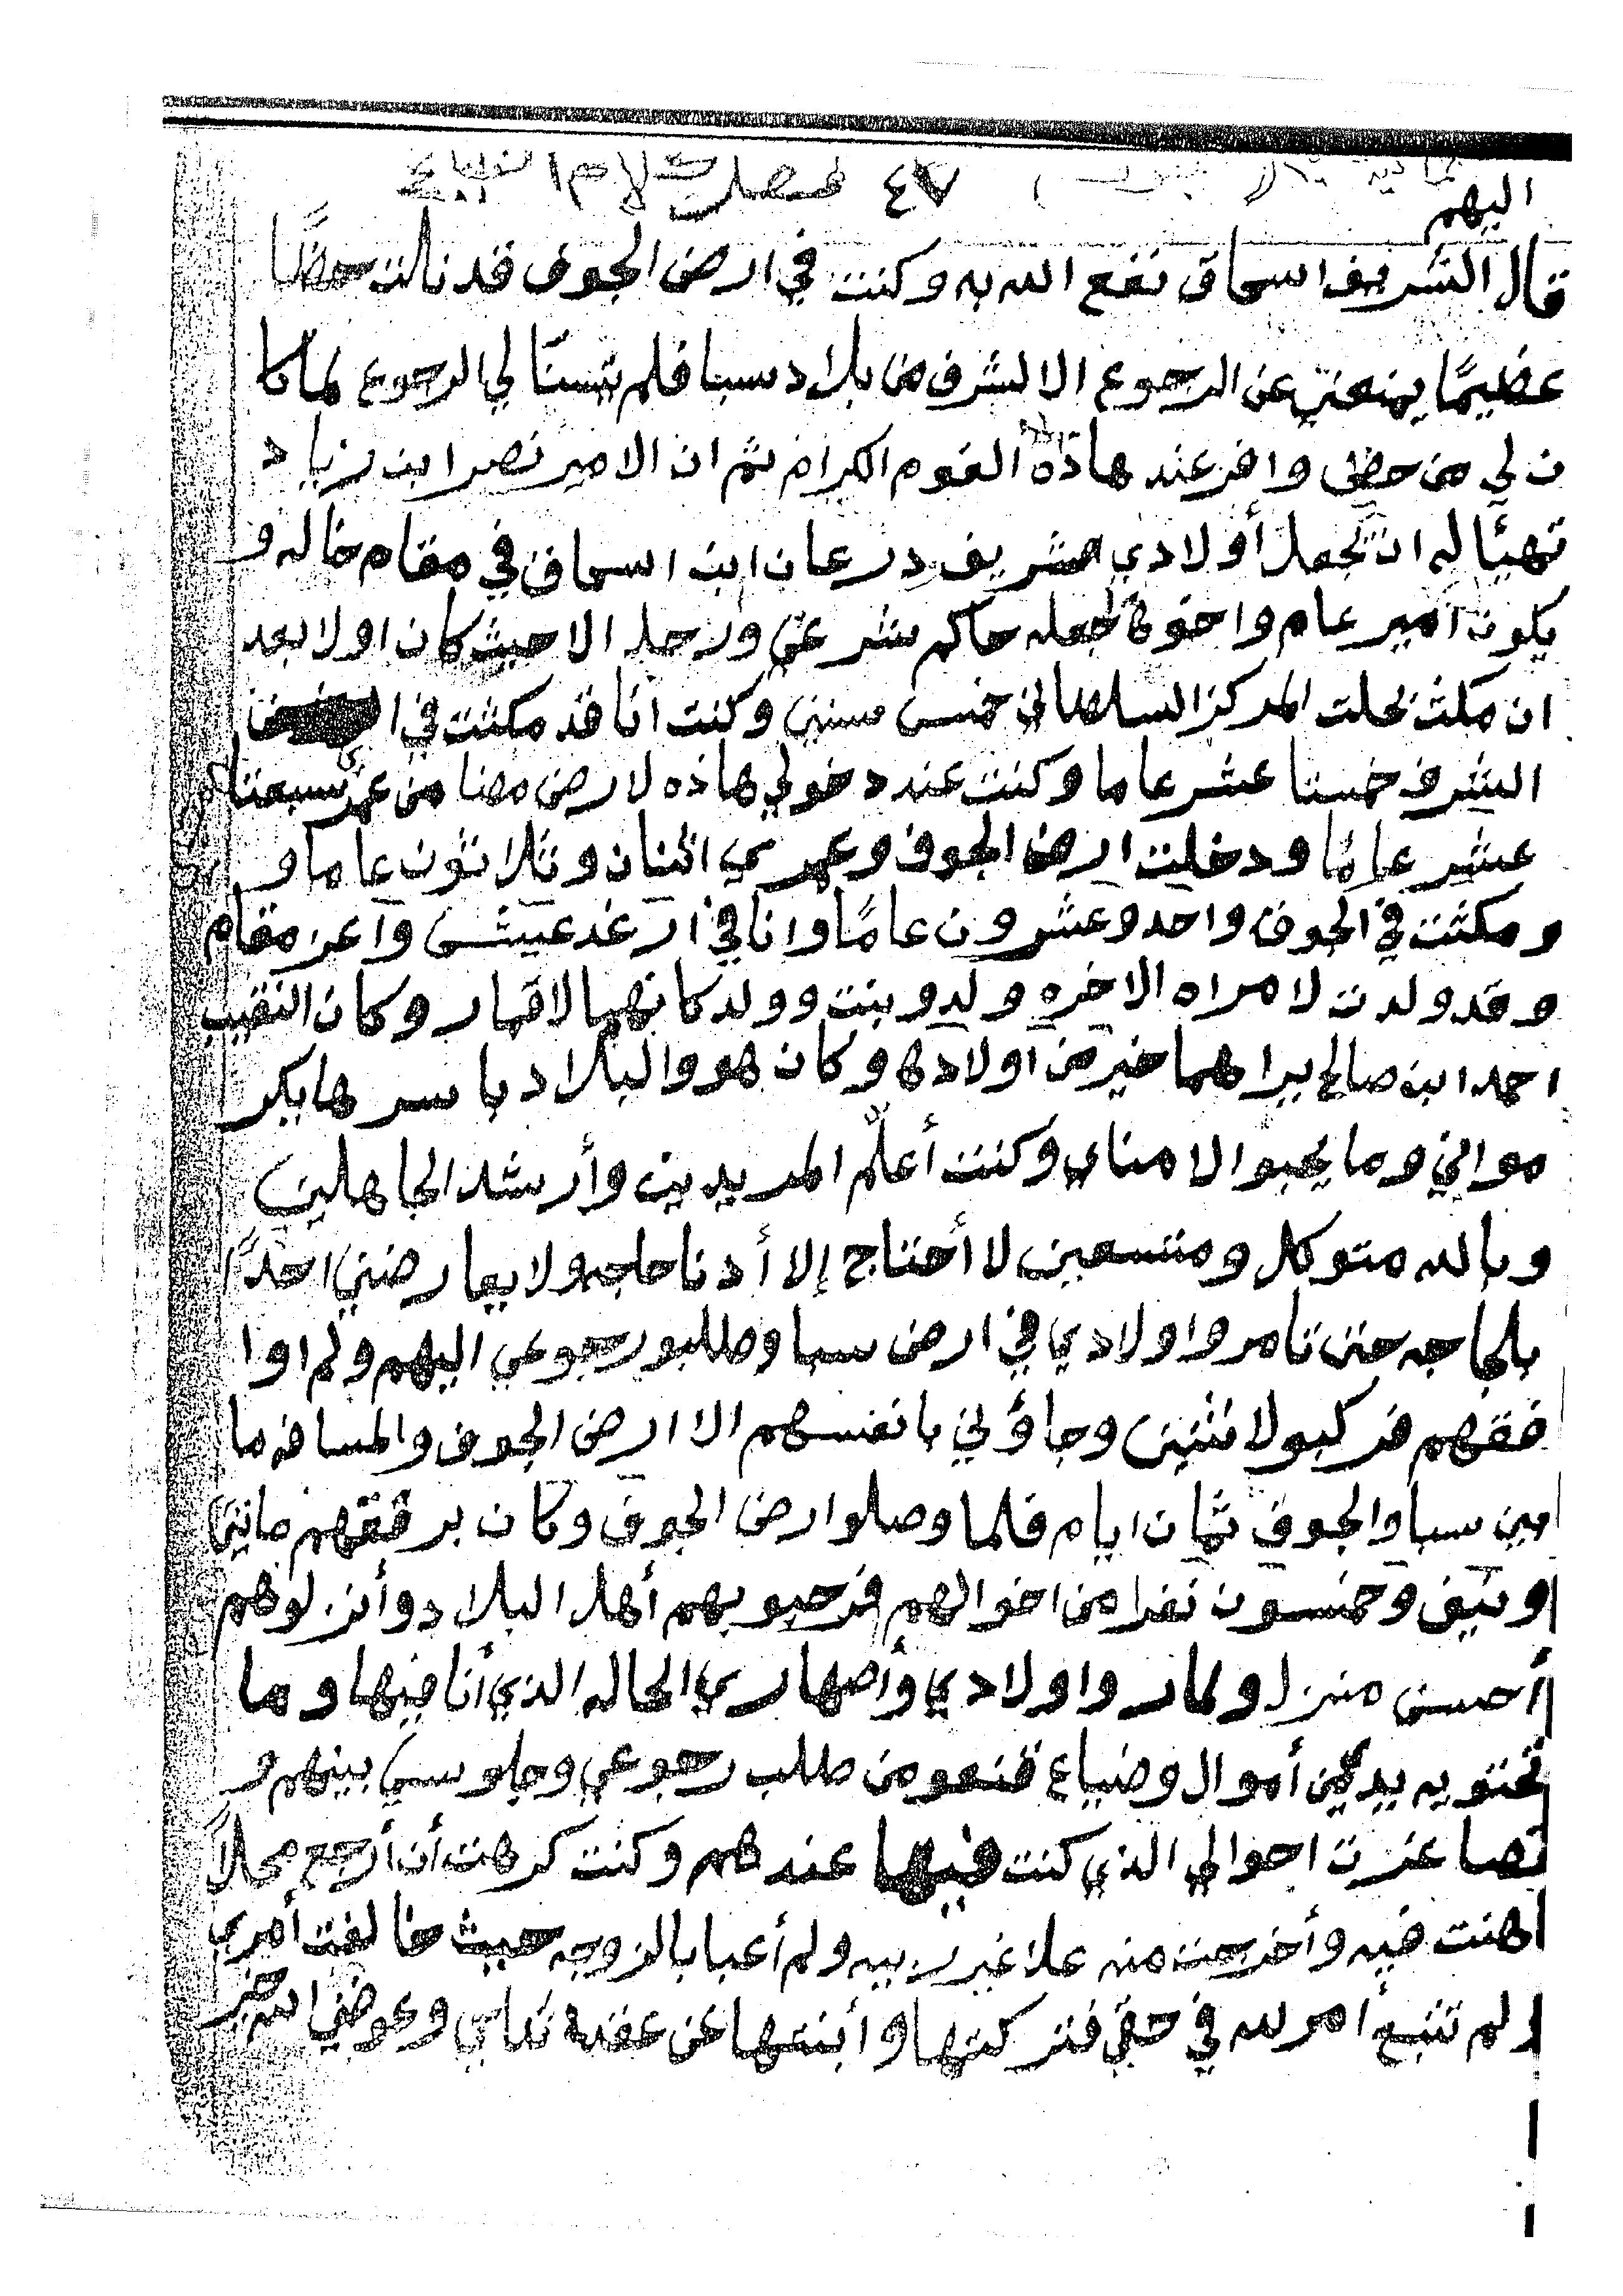 ٤٧ فصل كلام
اليهم
قال الشريف اسحاق نفع الله به وكنت في ارض الجوف قد نالت حظًا
عظيمًا يمنعني عن الرجوع الا الشرف من بلاد سبا فلم تسنّا لي الرجوع لما كا
ن لي من حظي وافر عند هاذه القوم الكرام ثم ان الامير نصر ابن زياد
تهيئا له ان تجعل أولادي شريف درعان ابن اسحاق في مقام خاله و
يكون امير عام واخوه تجعله حاكم شرعي ورحل الا حيث كان اولا بعد
ان مكث بحلت المركز السلطاني خمس سنين وكنت انا قد مكثت في
الشرف خمستا عشر عاما وكنت عند دخولي هاذه لارض مضا من عمري سبعتا
عشر عامًا ودخلت ارض الجوف وعمري اثنان وثلاثون عاما و
ومكثت في الجوف واحد وعشرون عامًا وانا في ارغد عيش وأعز مقام
وقد ولدت لامراه الاخره ولد وبنت وولد كانهما لاقمار وكان النقيب
احمد ابن صالح يراهما خير من اولاده وكان هو والبلاد باسرها بكر
موالي وما يحبو الا مناي وكنت أعلّم المريدين وأرشد الجاهلين
وبالله متوكل ومتسعين لا أحتاج إلا أدنا حاجه ولا يعارضني احدًا
بلحاجه حتى تامروا اولادي في ارض سبا وطلبو رجوعي اليهم ولم اوا
فقهم فركبو لاثنين وجاؤني بانفسهم الا ارض الجوف والمسافه ما
بين سبا والجوف ثمان ايام فلما وصلوا ارض الجوف وكان برفقهم مانتين
ونيف وخمسون نفرا من اخوالهم فرحبو بهم أهل البلاد وأنزلوهم
أحسن منزل ولما روا اولادي وأصهاري الحاله الذي أنا فيها وما
تحتويه يدي من أموال وضياع قنعو من طلب رجوعي وجلوسي بينهم و
تصاغرت احوالي الذي كنت فيها عندهم وكنت كرهت أن أرجع محلاً
اهنت فيه وأخرجت منه علا غير ربيه ولم أعبا بالزوجه حيث خالفت أمري
ولم تتبع أمر لله في حقي فتركتها وأبنتها عن عقدة نكاحي وعوضني الله خير